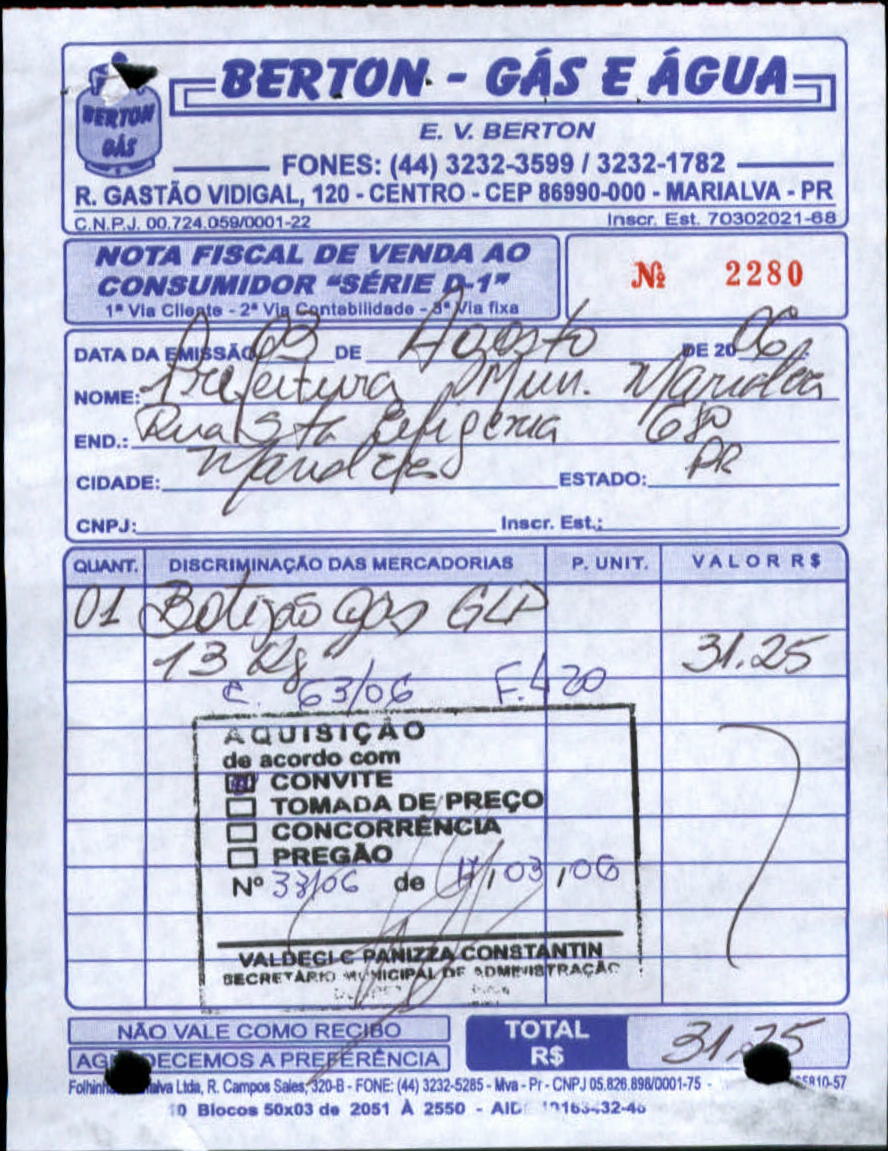 BERTON GÁS
BERTON - GÁS E ÁGUA
E. V. BERTON
FONES: (44) 3232-3599 / 3232-1782
R. GASTÃO VIDIGAL, 120 - CENTRO - CEP 86990-000 - MARIALVA - PR
C.N.P.J. 00.724.059/0001-22 Inscr. Est. 70302021-68
NOTA FISCAL DE VENDA AO
CONSUMIDOR "SÉRIE D-1"
1ª Via Cliente - 2ª Via Contabilidade - 3ª Via fixa
Nº 2280
DATA DA EMISSÃO 03 DE Agosto DE 2006
NOME: Prefeitura Mun. Marialva
END.: Rua Sta Efigenia 680
CIDADE: Marialva ESTADO: PR
CNPJ: Inscr. Est.:
QUANT. DISCRIMINAÇÃO DAS MERCADORIAS P. UNIT. VALOR R$
01 Botijão gas GLP
13 Kg 31.25
C 63/06 F.420
AQUISIÇÃO
de acordo com
CONVITE
TOMADA DE PREÇO
CONCORRÊNCIA
PREGÃO
Nº 33/06 de 17,03,06
VALDECI C PANIZZA CONSTANTIN
SECRETÁRIO MUNICIPAL DE ADMINISTRAÇÃO
NÃO VALE COMO RECIBO
AGRADECEMOS A PREFERÊNCIA
TOTAL R$ 31.25
Ltda, R. Campos Sales, 320-B - FONE: (44) 3232-5285 - Mva - Pr - CNPJ 05.826.898/0001-75 -
10 Blocos 50x03 de 2051 À 2550 - AIDF